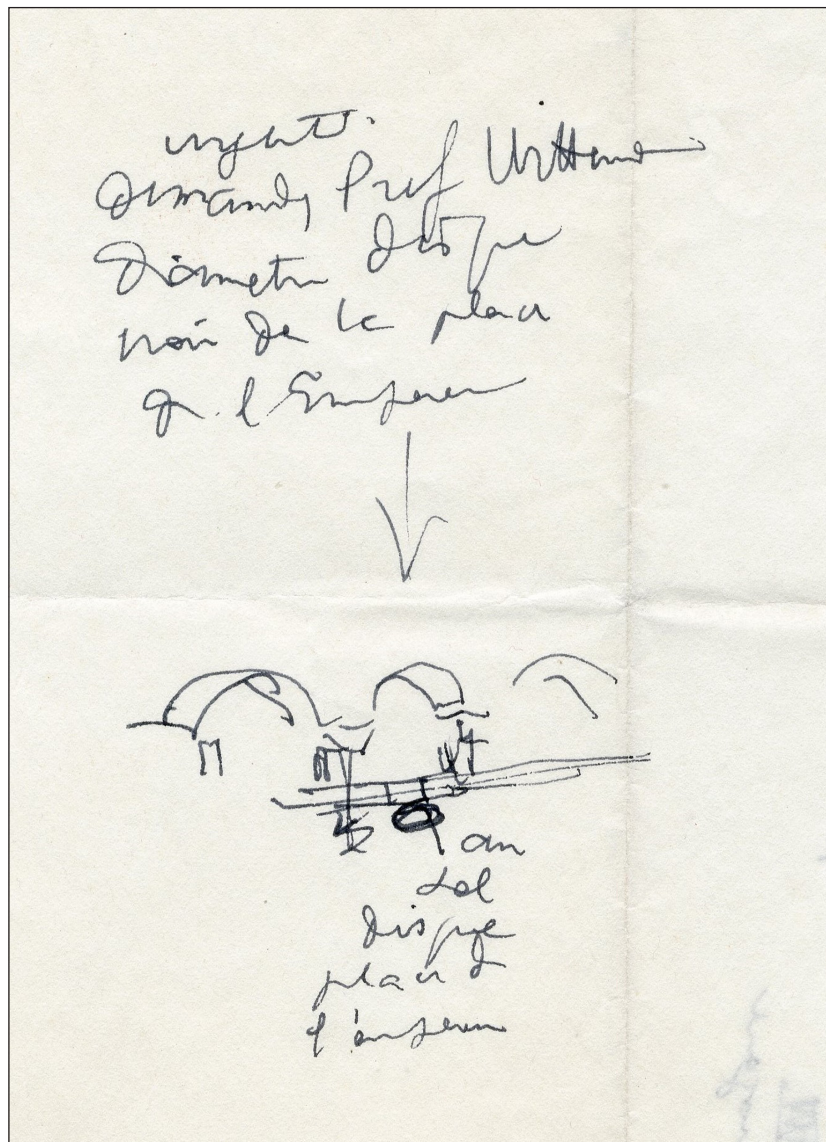 urgent.
Demandez Prof
Diamètre disque
noir de la place
de l'Empereur
au
sol
disque
place de
l'empereur